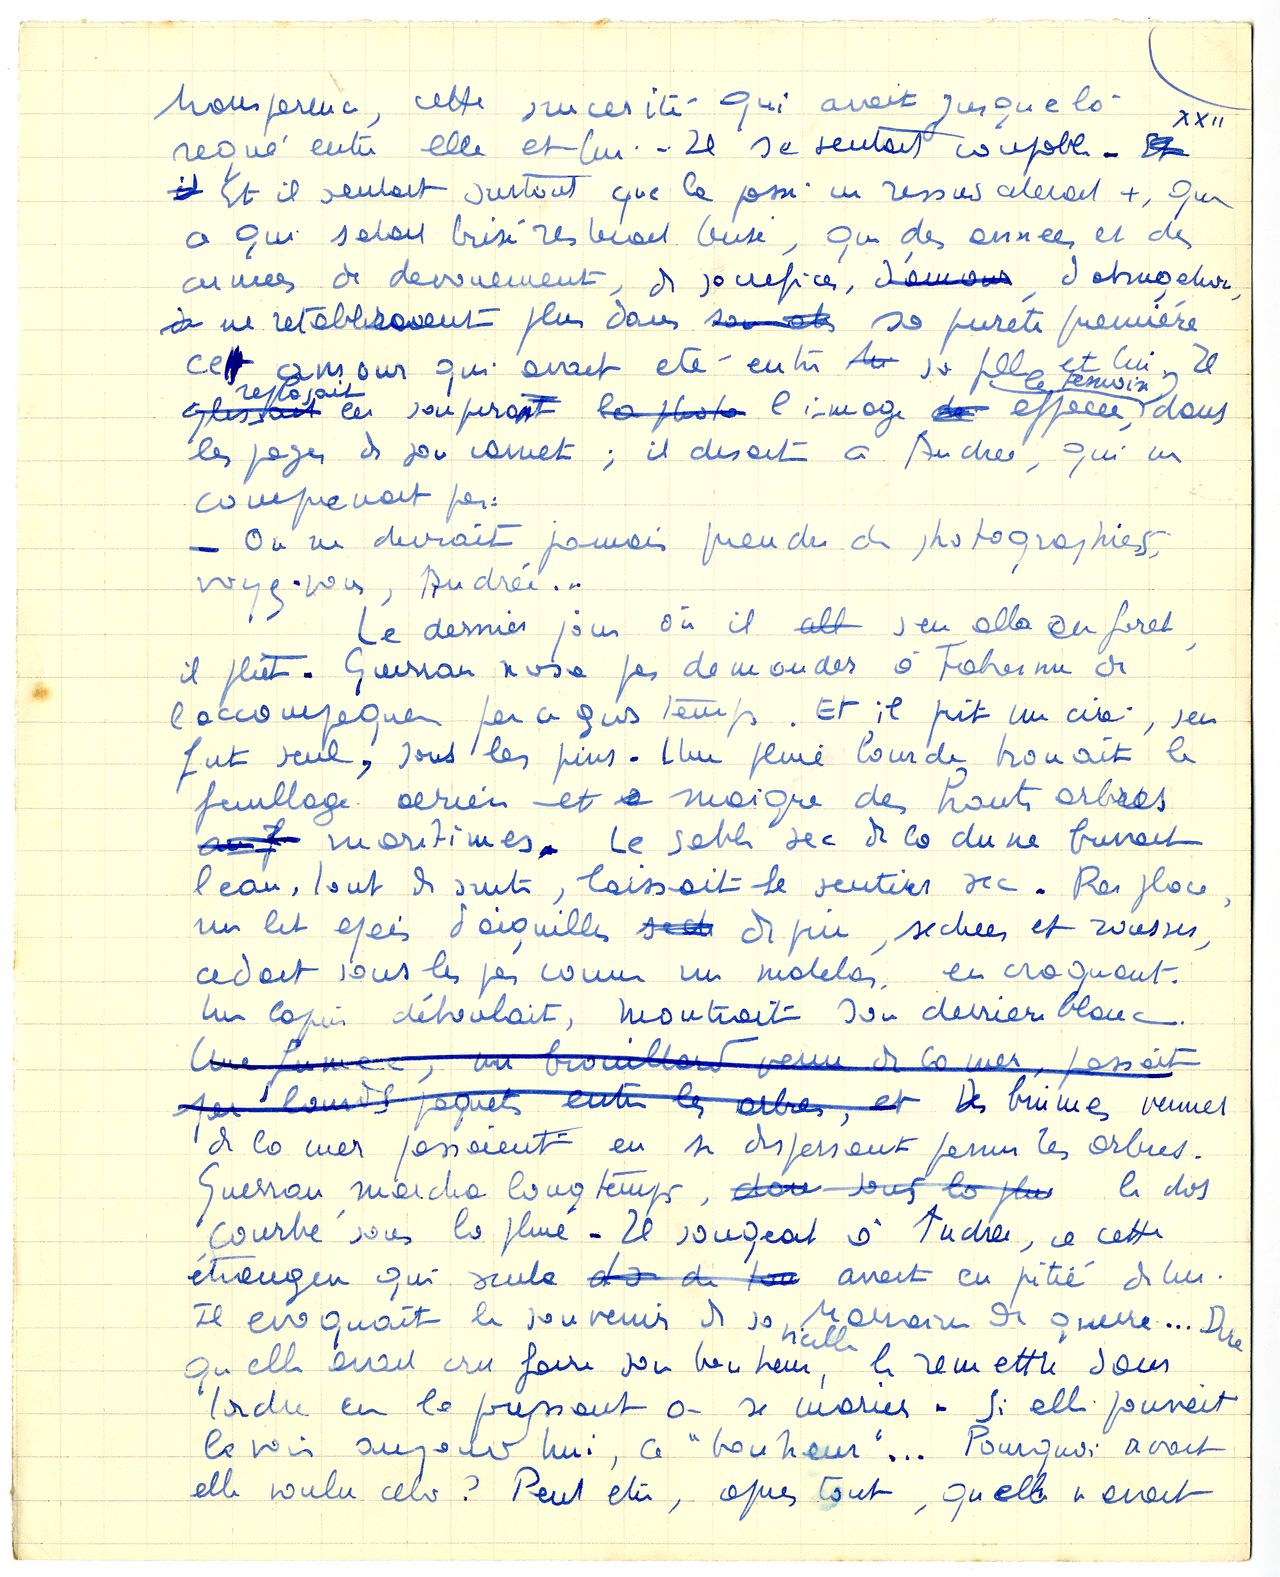 XXII
transparence, cette sincerité qui avait jusque là
regné entre elle et lui. Il se sentait coupable. Et
il Et il sentait surtout que le passé ne ressusciterait +, que
ce qui s'etait brisé resterait brisé, que des années et des
annees de devouement, de sacrifices, d'amour, d'abnegation,
ne retabliraient plus dans sa pureté première
cet amour qui avait eté entre sa fille et lui. Il
replaçait
glissait en soupirant la photo l'image effacée, le témoin, dans
les pages de son carnet ; il disait a Andrée, qui ne
comprenait pas :
– On ne devrait jamais prendre de photographies,
voyez-vous, Andrée...
Le dernier jour où il all s'en alla en foret,
il plut. Guerran n'osa pas demander à Fabienne de
l'accompagner par ce gros temps. Et il prit un ciré, s'en
fut seul, sous les pins. Une pluie lourde trouait le
feuillage aerien et maigre des hauts arbres
maritimes. Le sable sec de la dune buvait
l'eau, tout de suite, laissait le sentier sec. Par place,
un lit epais d'aiguilles de pin, sechees et rousses,
cedait sous les pas comme un matelas, en craquant.
Un lapin déboulait, montrait son derrière blanc.
Une fumée, un brouillard venu de la mer, passait
par lourds paquets entre les arbres, et Des brumes venues
de la mer passaient en se dispersant parmi les arbres.
Guerran marcha longtemps, dans sous la pluie le dos
courbé sous la pluie. Il songeait à Andrée, a cette
étrangere qui seule avait eu pitié de lui.
Il evoquait le souvenir de sa vieille marraine de guerre... Dire
qu'elle avait cru faire son bonheur, le remettre dans
l'ordre en le pressant a se marier. Si elle pouvait
le voir aujourd'hui, ce "bonheur"... Pourquoi avait
elle voulu cela ? Peut etre, apres tout, qu'elle n'avait